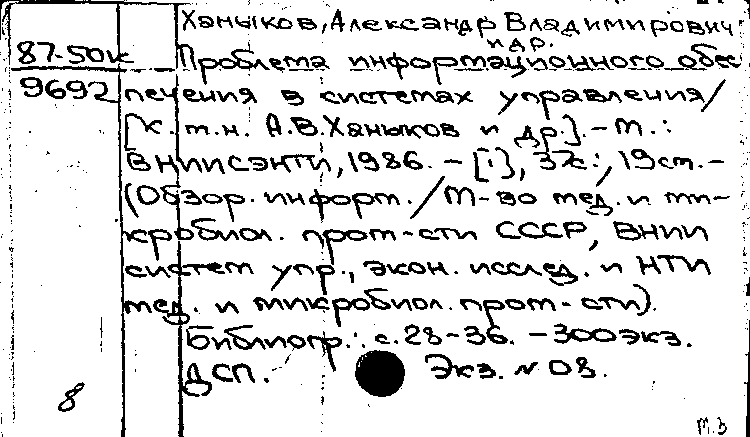 Ханыков, Александр Владимирович
и др.
87-50к Проблема информационного обес
9692 печения в системах управления/
[К. т. н. А.В. Ханыков и др.]. - М. :
ВНИИСЭНТИ, 1986. - [1], 37с. ; 19см. -
(Обзор. информ. / М-во мед. и ми-
кробиол. пром-сти СССР, ВНИИ
систем упр., экон. исслед. и НТИ
мед. и микробиол. пром-сти).
Библиогр. : с. 28-36. - 300экз.
ДСП. Экз. N 08.
8